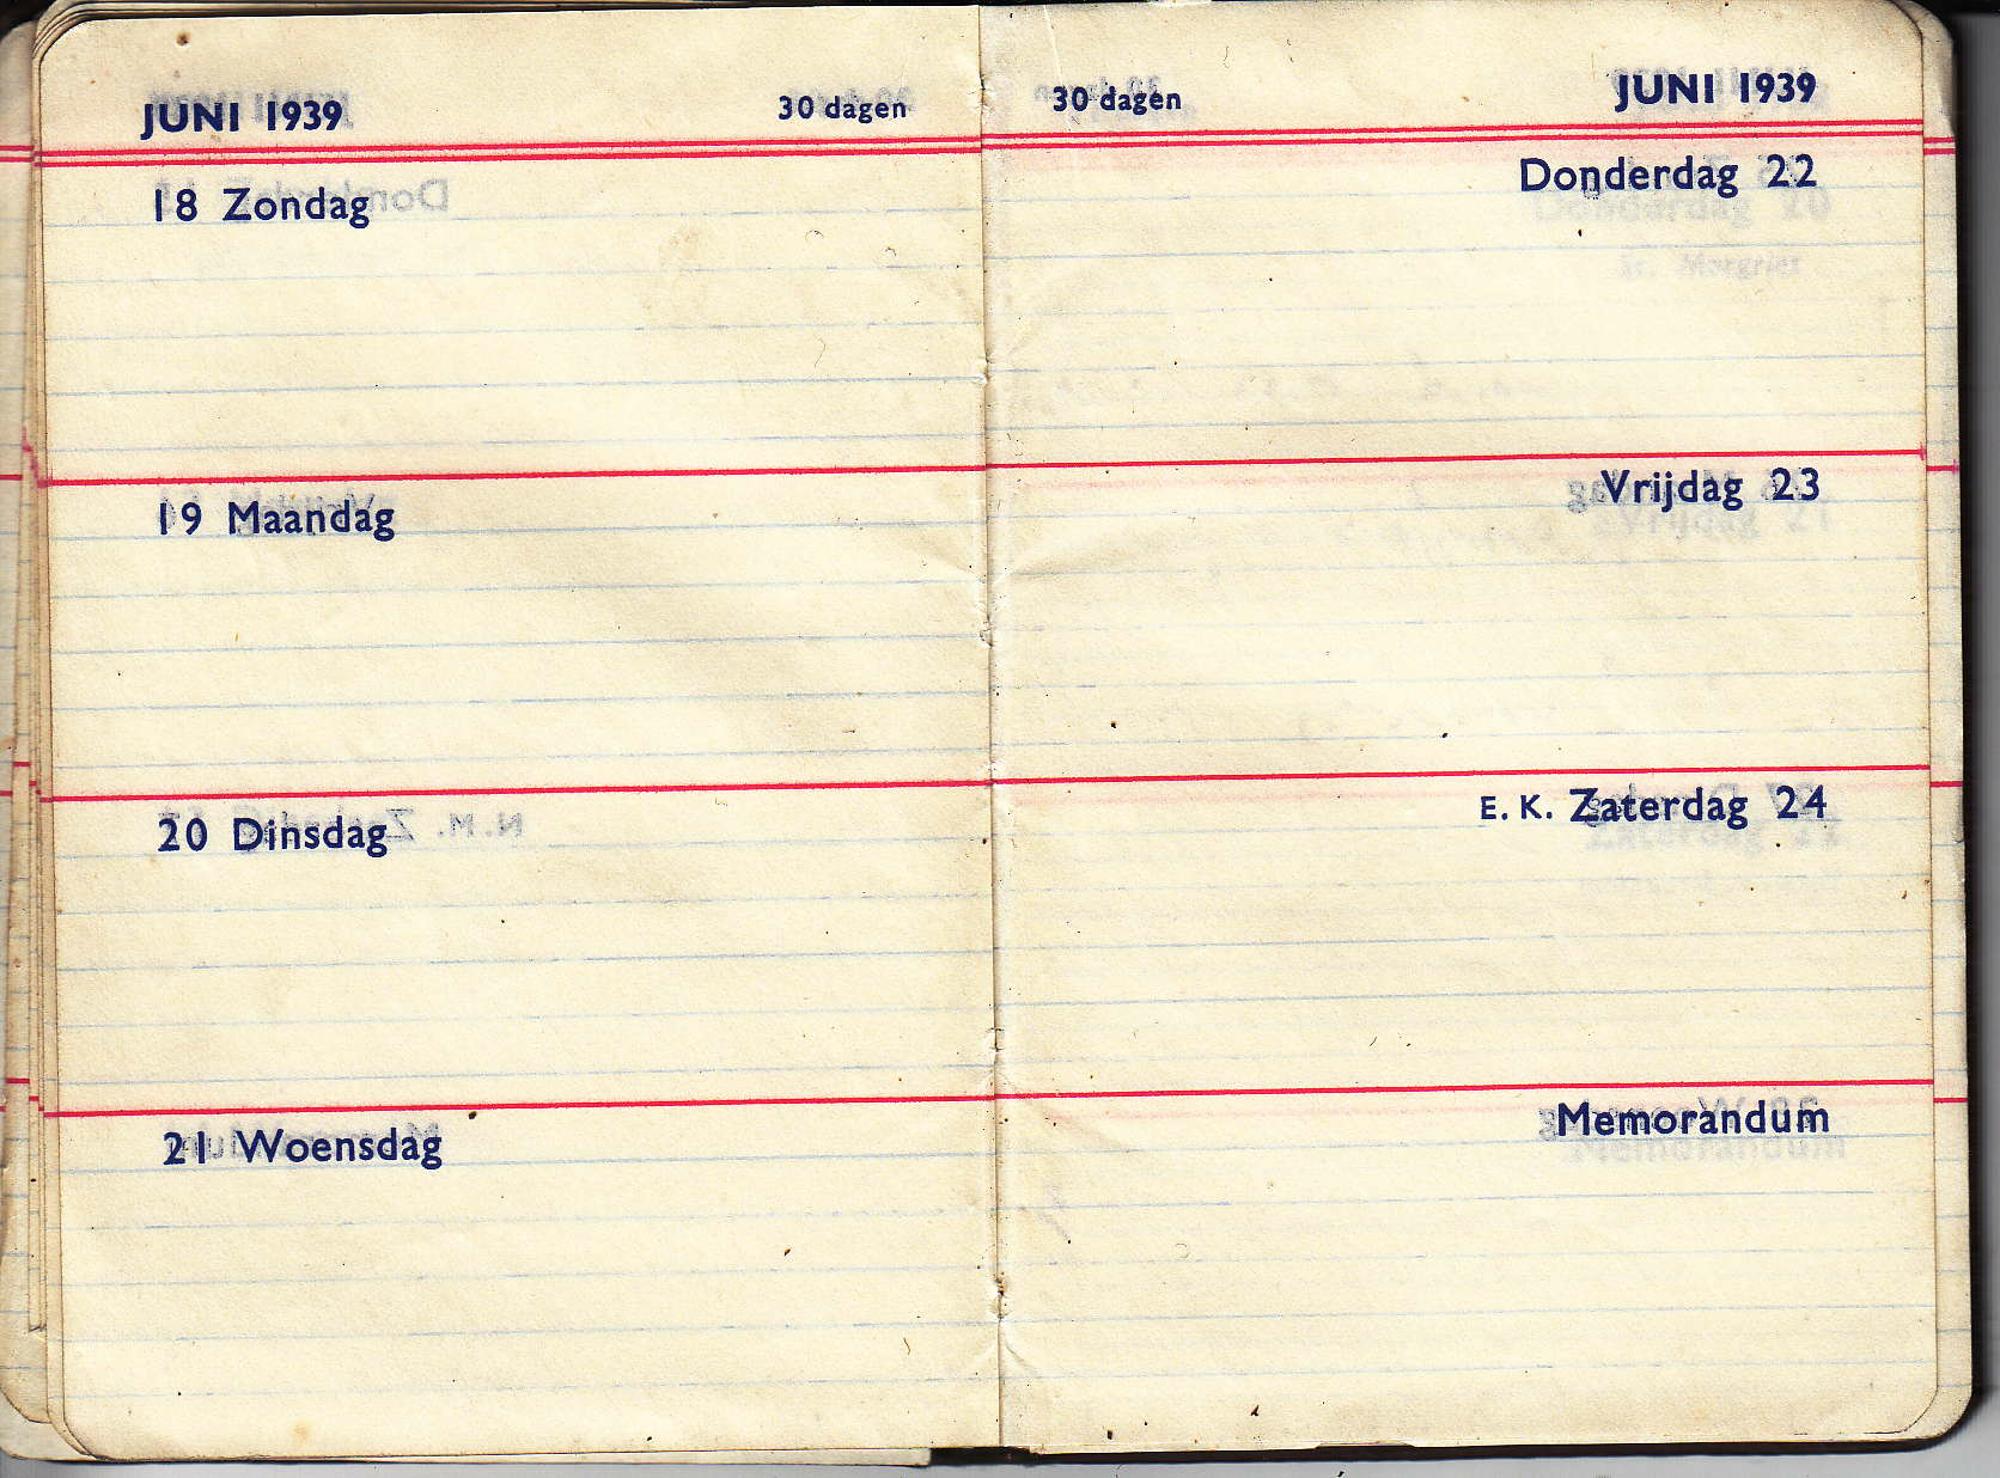 JUNI 1939 30 dagen
18 Zondag
19 Maandag
20 Dinsdag
21 Woensdag
30 dagen JUNI 1939
Donderdag 22
Vrijdag 23
E. K. Zaterdag 24
Memorandum